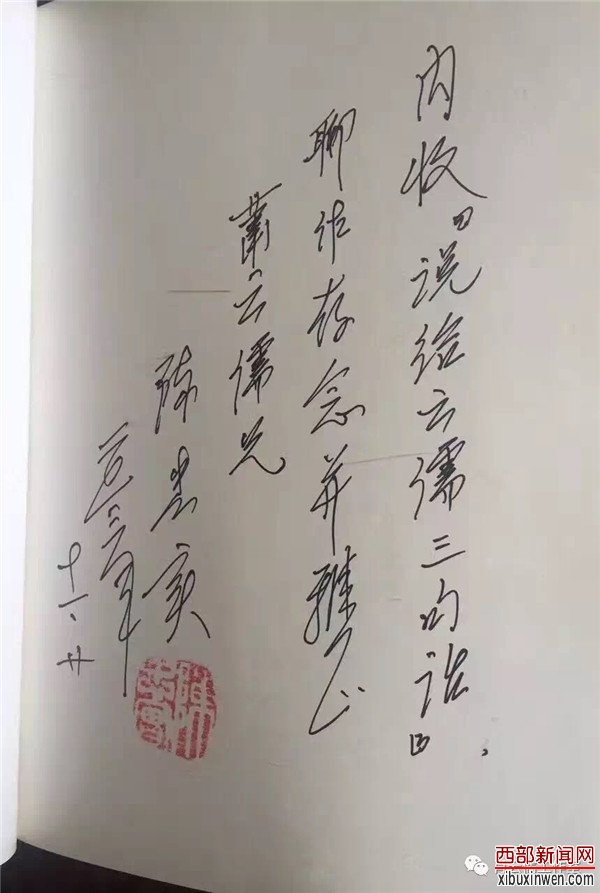 内收『说给云儒三句话』，
聊作存念并雅正
萧云儒兄
陈忠实
年
十一、廿
西部新闻网
xibuxinwen.com